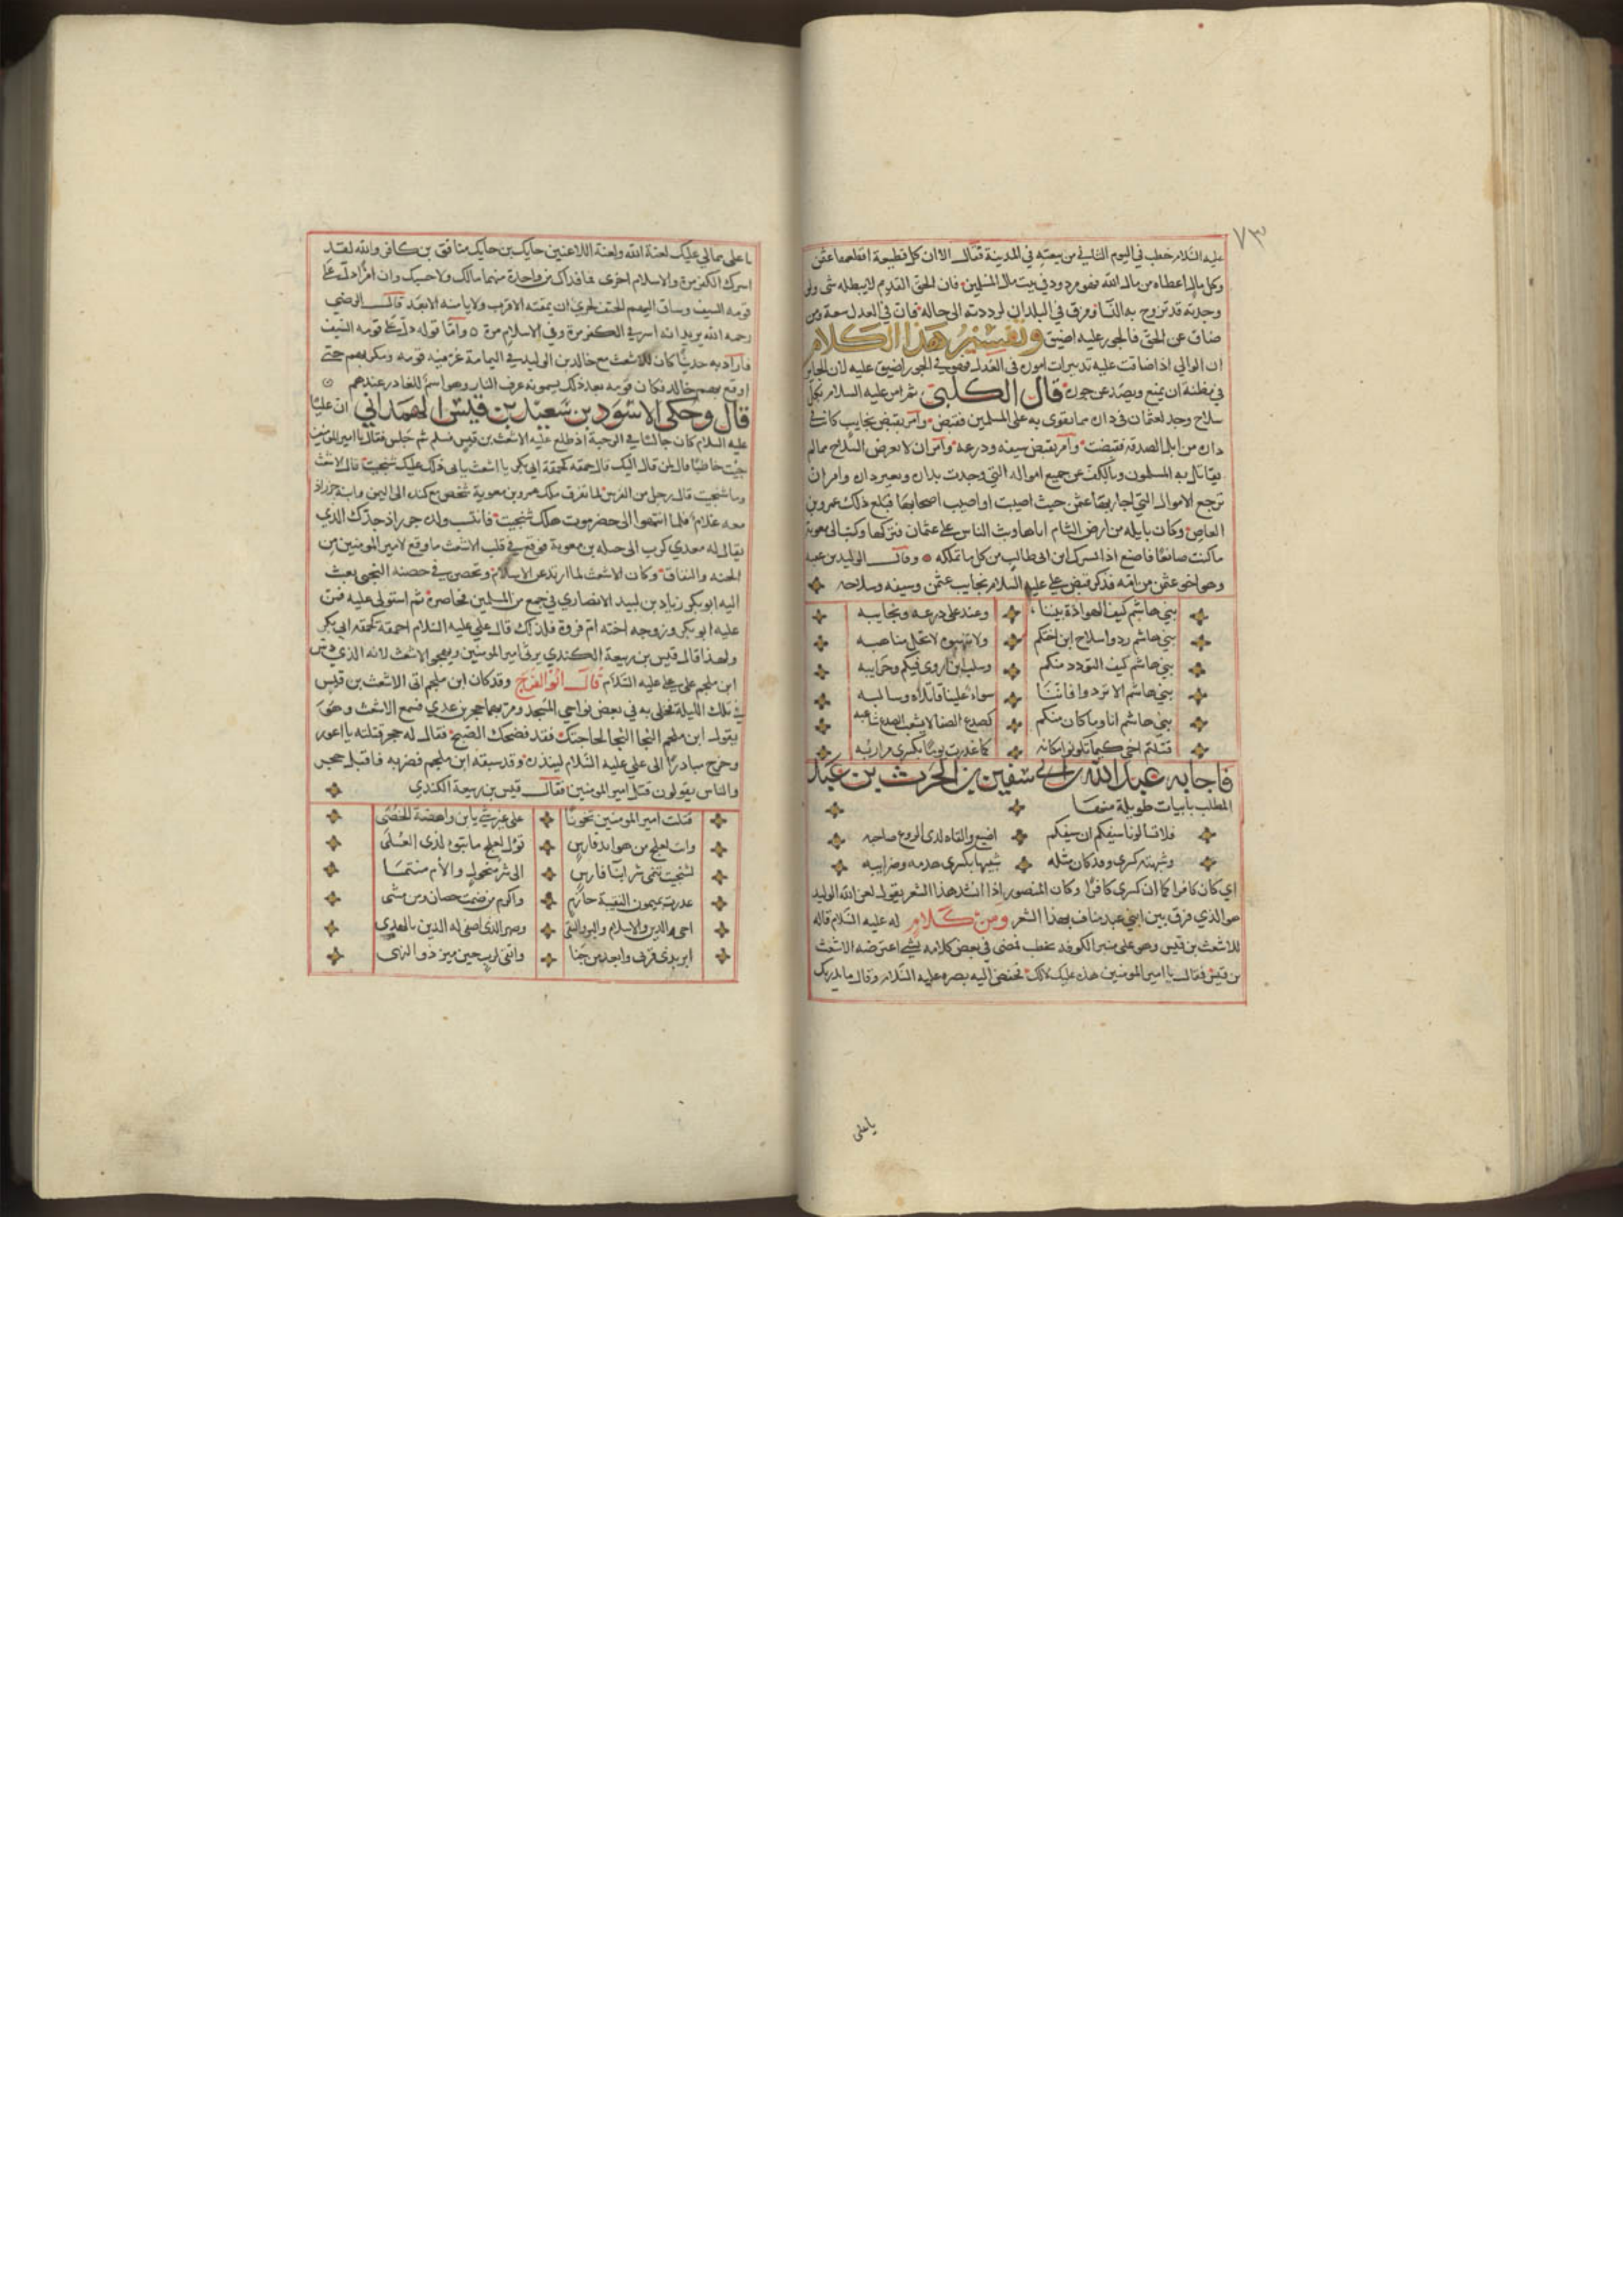 ٧٣
عليه السلام خطب في اليوم الثاني من بيعته في المدينة فقال الا ان كل قطيعة اقطعها عثمن
وكل مال اعطاه من مال الله فهو مردود في بيت مال المسلمين فان الحق القديم لا يبطله شى ولو
وجدته قد تزوج به النسا وفرق في البلدان لرددته الى حاله فان في العدل سعة ومن
ضاق عن الحق فالجور عليه اضيق وتفسير هذا الكلام
ان الوالي اذا ضاقت عليه تدبيرات اموره في العدل فهو في الجور اضيق عليه لان الجاير
في مظنة ان يمنع ويصد عن جوره قال الكلبي ثم امر عليه السلام بكل
سلاح وجد لعثمان في داره مما تقوى به على المسلمين فقبض وامر بقبض نجايب كانت في
داره من ابل الصدقة فقبضت وامر بقبض سيفه ودرعه وامر ان لا يعرض لسلاح مما لم
يقاتل به المسلمون وبالكف عن جميع امواله التي وجدت بداره وبغير داره وامر ان
ترجع الاموال التي اجاز بها عثمن حيث اصيبت او اصيب اصحابها فبلغ ذلك عمرو بن
العاص وكان بايله من ارض الشام اتاها وثب الناس على عثمان فنزلها وكتب الى معوية
ما كنت صانعا فاصنع اذا قسرك ابن ابي طالب من كل ما تملكه وقال الوليد بن عقبة
وهو اخو عثمن من امه فذكر قبض علي عليه السلام نجايب عثمن وسيفه وسلاحه
بني هاشم كيف الهوادة بيننا وعند علي درعه ونجايبه
بني هاشم ردوا سلاح ابن اختكم ولا تنهبوه لا تحل مناهبه
بني هاشم كيف التودد منكم وسلب ابن اروى فيكم وحرايبه
بني هاشم الا تردوا فاننا سواء علينا قاتلاه وسالبه
بني هاشم انا وما كان منكم كصدع الصفا لا يشعب الصدع شاعبه
قتلتم اخي كيما تكونوا مكانه كما غدرت يوما بكسرى مرازبه
فاجابه عبد الله بن ابي سفين بن الحرث بن عبد
المطلب بابيات طويلة منها
فلا تسالونا سيفكم ان سيفكم اضيع والقاه لدى الروع صاحبه
وشبهته كسرى وقد كان مثله شبيها بكسرى هديه وضرايبه
اي كان كافرا كما ان كسرى كافرا وكان المنصور اذا انشد هذا الشعر يقول لعن الله الوليد
هو الذي فرق بين ابني عبد مناف بهذا الشعر ومن كلام له عليه السلام قاله
للاشعث بن قيس وهو على منبر الكوفة يخطب فمضى في بعض كلامه شى اعترضه الاشعث
بن قيس فقال يا امير المومنين هذه عليك لا لك فخفض اليه بصره عليه السلام وقال ما يدريك
يا على
ما على مما لي عليك لعنة الله ولعنة اللاعنين حايك بن حايك منافق بن كافر والله لقد
اسرك الكفر مرة والاسلام اخرى فما فداك من واحدة منهما مالك ولا حسبك وان امرا دل على
قومه السيف وساق اليهم الحتف لحري ان يمقته الاقرب ولا يامنه الابعد قال الرضي
رحمه الله يريد انه اسر في الكفر مرة وفي الاسلام مرة واما قوله دل على قومه السيف
فاراد به حديثا كان للاشعث مع خالد بن الوليد في اليمامة غر فيه قومه ومكر بهم حتى
اوقع بهم خالد فكان قومه بعد ذلك يسمونه عرف النار وهو اسم للغادر عندهم
قال وحكى الاسود بن سعيد بن قيس الهمداني ان عليا
عليه السلام كان جالسا في الرحبة اذ طلع عليه الاشعث بن قيس فسلم ثم جلس فقال يا امير المومنين
جيت خاطبا قال لمن قال اليك قال حمقة كحمقة ابي بكر يا اشعث يا بى ذلك عليك شنجيت قال الاشعث
وما شنجيت قال رجل من الفرس لما تفرق ملك عمرو بن معوية شخص مع كنده الى اليمن وابنة جرزاذ
معه غلام فلما انتهوا الى حضرموت هلك شنجيت فانتسب ولده جرزاذ جدك الذي
يقال له معدي كرب الى جبله بن معوية فوقع في قلب الاشعث ما وقع لامير المومنين من
الحنه والنفاق وكان الاشعث لما ارتد عن الاسلام وتحصن في حصنه النجير بعث
اليه ابو بكر زياد بن لبيد الانصاري في جمع من المسلمين فحاصره ثم استولى عليه فمن
عليه ابو بكر وزوجه اخته ام فروة فلذلك قال علي عليه السلام احمقة كحمقه ابي بكر
ولهذا قال قيس بن ربيعة الكندي يرثي امير المومنين ويهجو الاشعث لانه الذي دس
ابن ملجم على علي عليه السلام قال ابو الفرج وقد كان ابن ملجم اتى الاشعث بن قيس
في تلك الليلة فخلى به في بعض نواحي المسجد ومر بهما حجر بن عدي فسمع الاشعث وهو
يقول ابن ملجم النجا النجا لحاجتك فقد فضحك الصبح فقال له حجر قتلته يا اعور
وخرج مبادرا الى علي عليه السلام لينذره وقد سبقه ابن ملجم فضربه فاقبل حجر
والناس يقولون قتل امير المومنين فقال قيس بن ربيعة الكندي
قتلت امير المومنين تخونا على غرة يا بن واهصة الخصى
وانت لعلج من هرابذ فارس تؤل لعلج ما بتوه لذى العلى
لشنجيت تنمى شر ابنا فارس الى شر منحول والأم منتما
غدرت بميمون النقيبة حازم واكرم من ضمت حصان ومن مشى
اخي الدين والاسلام والبر والتقى وصهر الذى اصفى له الدين بالهدى
ابر بذى قربى وابعد من خنا واتقى لرب حين ميز ذو النهى